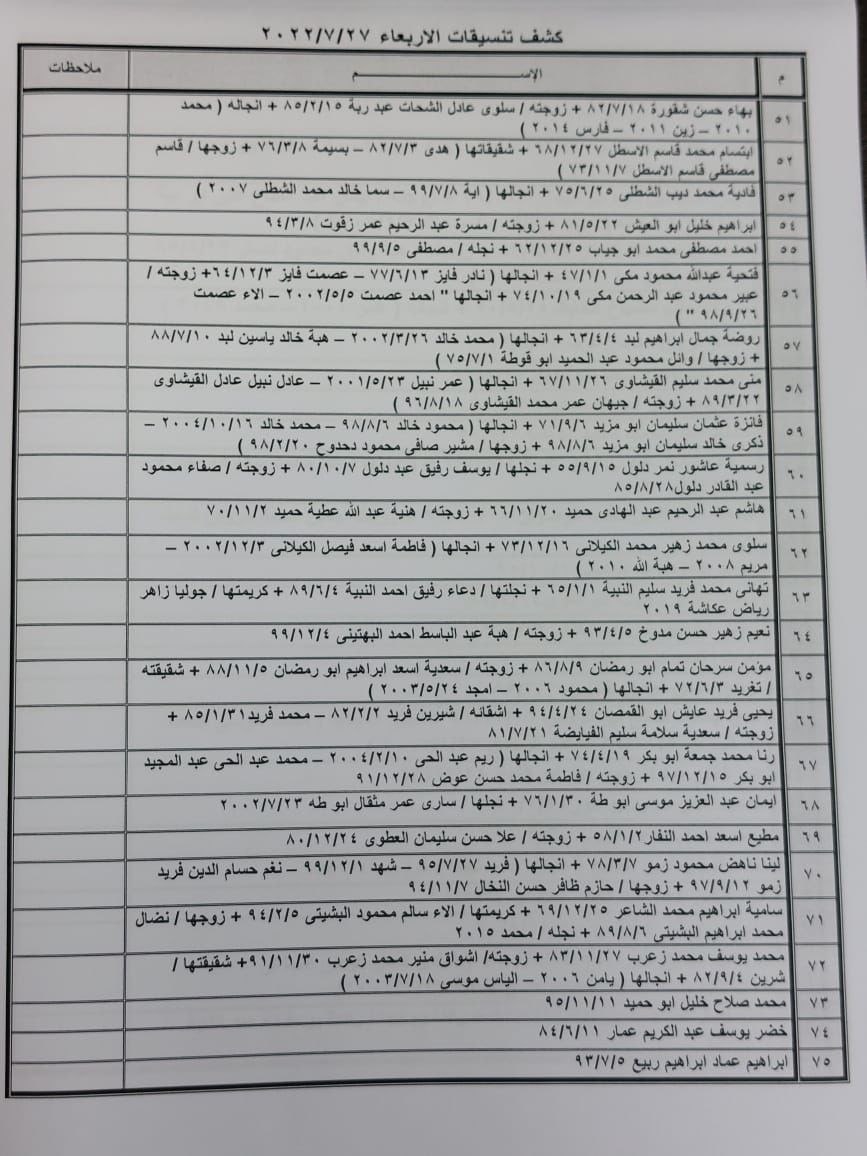 كشف تنسيقات الاربعاء ٢٠٢٢/٧/٢٧
م الإســـــــــم ملاحظات
٥١ بهاء حسن شقورة ٨٢/٧/١٨ + زوجته / سلوى عادل الشحات عبد ربة ٨٥/٢/١٥ + انجاله ( محمد
٢٠١٠ – زين ٢٠١١ – فارس ٢٠١٤ )
٥٢ ابتسام محمد قاسم الاسطل ٦٨/١٢/٢٧ + شقيقاتها ( هدى ٨٢/٧/٣ – بسيمة ٧٦/٣/٨ + زوجها / قاسم
مصطفى قاسم الاسطل ٧٣/١١/٧ )
٥٣ فادية محمد ديب الشطلى ٧٥/٦/٢٥ + انجالها ( اية ٩٩/٧/٨ – سما خالد محمد الشطلى ٢٠٠٧ )
٥٤ ابراهيم خليل ابو العيش ٨١/٥/٢٢ + زوجته / مسرة عبد الرحيم عمر زقوت ٩٤/٣/٨
٥٥ احمد مصطفى محمد ابو جياب ٦٢/١٢/٢٥ + نجله / مصطفى ٩٩/٩/٥
٥٦ فتحية عبدالله محمود مكى ٤٧/١/١ + انجالها ( نادر فايز ٧٧/٦/١٣ – عصمت فايز ٦٤/١٢/٣+ زوجته /
عبير محمود عبد الرحمن مكى ٧٤/١٠/١٩ + انجالها " احمد عصمت ٢٠٠٢/٥/٥ – الاء عصمت
٩٨/٩/٢٦ " )
٥٧ روضة جمال ابراهيم لبد ٦٣/٤/٤ + انجالها ( محمد خالد ٢٠٠٢/٣/٢٦ – هبة خالد ياسين لبد ٨٨/٧/١٠
+ زوجها / وائل محمود عبد الحميد ابو قوطة ٧٥/٧/١ )
٥٨ منى محمد سليم القيشاوى ٦٧/١١/٢٦ + انجالها ( عمر نبيل ٢٠٠١/٥/٢٣ – عادل نبيل عادل القيشاوى
٨٩/٣/٢٢ + زوجته / جيهان عمر محمد القيشاوى ٩٦/٨/١٨ )
٥٩ فائزة عثمان سليمان ابو مزيد ٧١/٩/٦ + انجالها ( محمود خالد ٩٨/٨/٦ – محمد خالد ٢٠٠٤/١٠/١٦ –
ذكرى خالد سليمان ابو مزيد ٩٨/٨/٦ + زوجها / مشير صافى محمود دحدوح ٩٨/٢/٢٠ )
٦٠ رسمية عاشور نمر دلول ٥٥/٩/١٥ + نجلها / يوسف رفيق عبد دلول ٨٠/١٠/٧ + زوجته / صفاء محمود
عبد القادر دلول ٨٥/٨/٢٨
٦١ هاشم عبد الرحيم عبد الهادى حميد ٦٦/١١/٢٠ + زوجته / هنية عبد الله عطية حميد ٧٠/١١/٢
٦٢ سلوى محمد زهير محمد الكيلانى ٧٣/١٢/١٦ + انجالها ( فاطمة اسعد فيصل الكيلانى ٢٠٠٢/١٢/٣ –
مريم ٢٠٠٨ – هبة الله ٢٠١٠ )
٦٣ تهانى محمد فريد سليم النبية ٦٥/١/١ + نجلتها / دعاء رفيق احمد النبية ٨٩/٦/٤ + كريمتها / جوليا زاهر
رياض عكاشة ٢٠١٩
٦٤ نعيم زهير حسن مدوخ ٩٣/٤/٥ + زوجته / هبة عبد الباسط احمد البهتينى ٩٩/١٢/٤
٦٥ مؤمن سرحان تمام ابو رمضان ٨٦/٨/٩ + زوجته / سعدية اسعد ابراهيم ابو رمضان ٨٨/١١/٥ + شقيقته
/ تغريد ٧٢/٦/٣ + انجالها ( محمود ٢٠٠٦ – امجد ٢٠٠٣/٥/٢٤ )
٦٦ يحيى فريد عايش ابو القمصان ٩٤/٤/٢٤ + اشقائه / شيرين فريد ٨٢/٢/٢ – محمد فريد ٨٥/١/٣١ +
زوجته / سعدية سلامة سليم الفيايضة ٨١/٧/٢١
٦٧ رنا محمد جمعة ابو بكر ٧٤/٤/١٩ + انجالها ( ريم عبد الحى ٢٠٠٤/٢/١٠ – محمد عبد الحى عبد المجيد
ابو بكر ٩٧/١٢/١٥ + زوجته / فاطمة محمد حسن عوض ٩١/١٢/٢٨
٦٨ ايمان عبد العزيز موسى ابو طة ٧٦/١/٣٠ + نجلها / سارى عمر مثقال ابو طه ٢٠٠٢/٧/٢٣
٦٩ مطيع اسعد احمد النفار ٥٨/١/٢ + زوجته / علا حسن سليمان العطوى ٨٠/١٢/٢٤
٧٠ لينا ناهض محمود زمو ٧٨/٣/٧ + انجالها ( فريد ٩٥/٧/٢٧ – شهد ٩٩/١٢/١ – نغم حسام الدين فريد
زمو ٩٧/٩/١٢ + زوجها / حازم ظافر حسن النخال ٩٤/١١/٧
٧١ سامية ابراهيم محمد الشاعر ٦٩/١٢/٢٥ + كريمتها / الاء سالم محمود البشيتى ٩٤/٢/٥ + زوجها / نضال
محمد ابراهيم البشيتى ٨٩/٨/٦ + نجله / محمد ٢٠١٥
٧٢ محمد يوسف محمد زعرب ٨٣/١١/٢٧ + زوجته/ اشواق منير محمد زعرب ٩١/١١/٣٠+ شقيقتها /
شرين ٨٢/٩/٤ + انجالها ( يامن ٢٠٠٦ – الياس موسى ٢٠٠٣/٧/١٨ )
٧٣ محمد صلاح خليل ابو حميد ٩٥/١١/١١
٧٤ خضر يوسف عبد الكريم عمار ٨٤/٦/١١
٧٥ ابراهيم عماد ابراهيم ربيع ٩٣/٧/٥